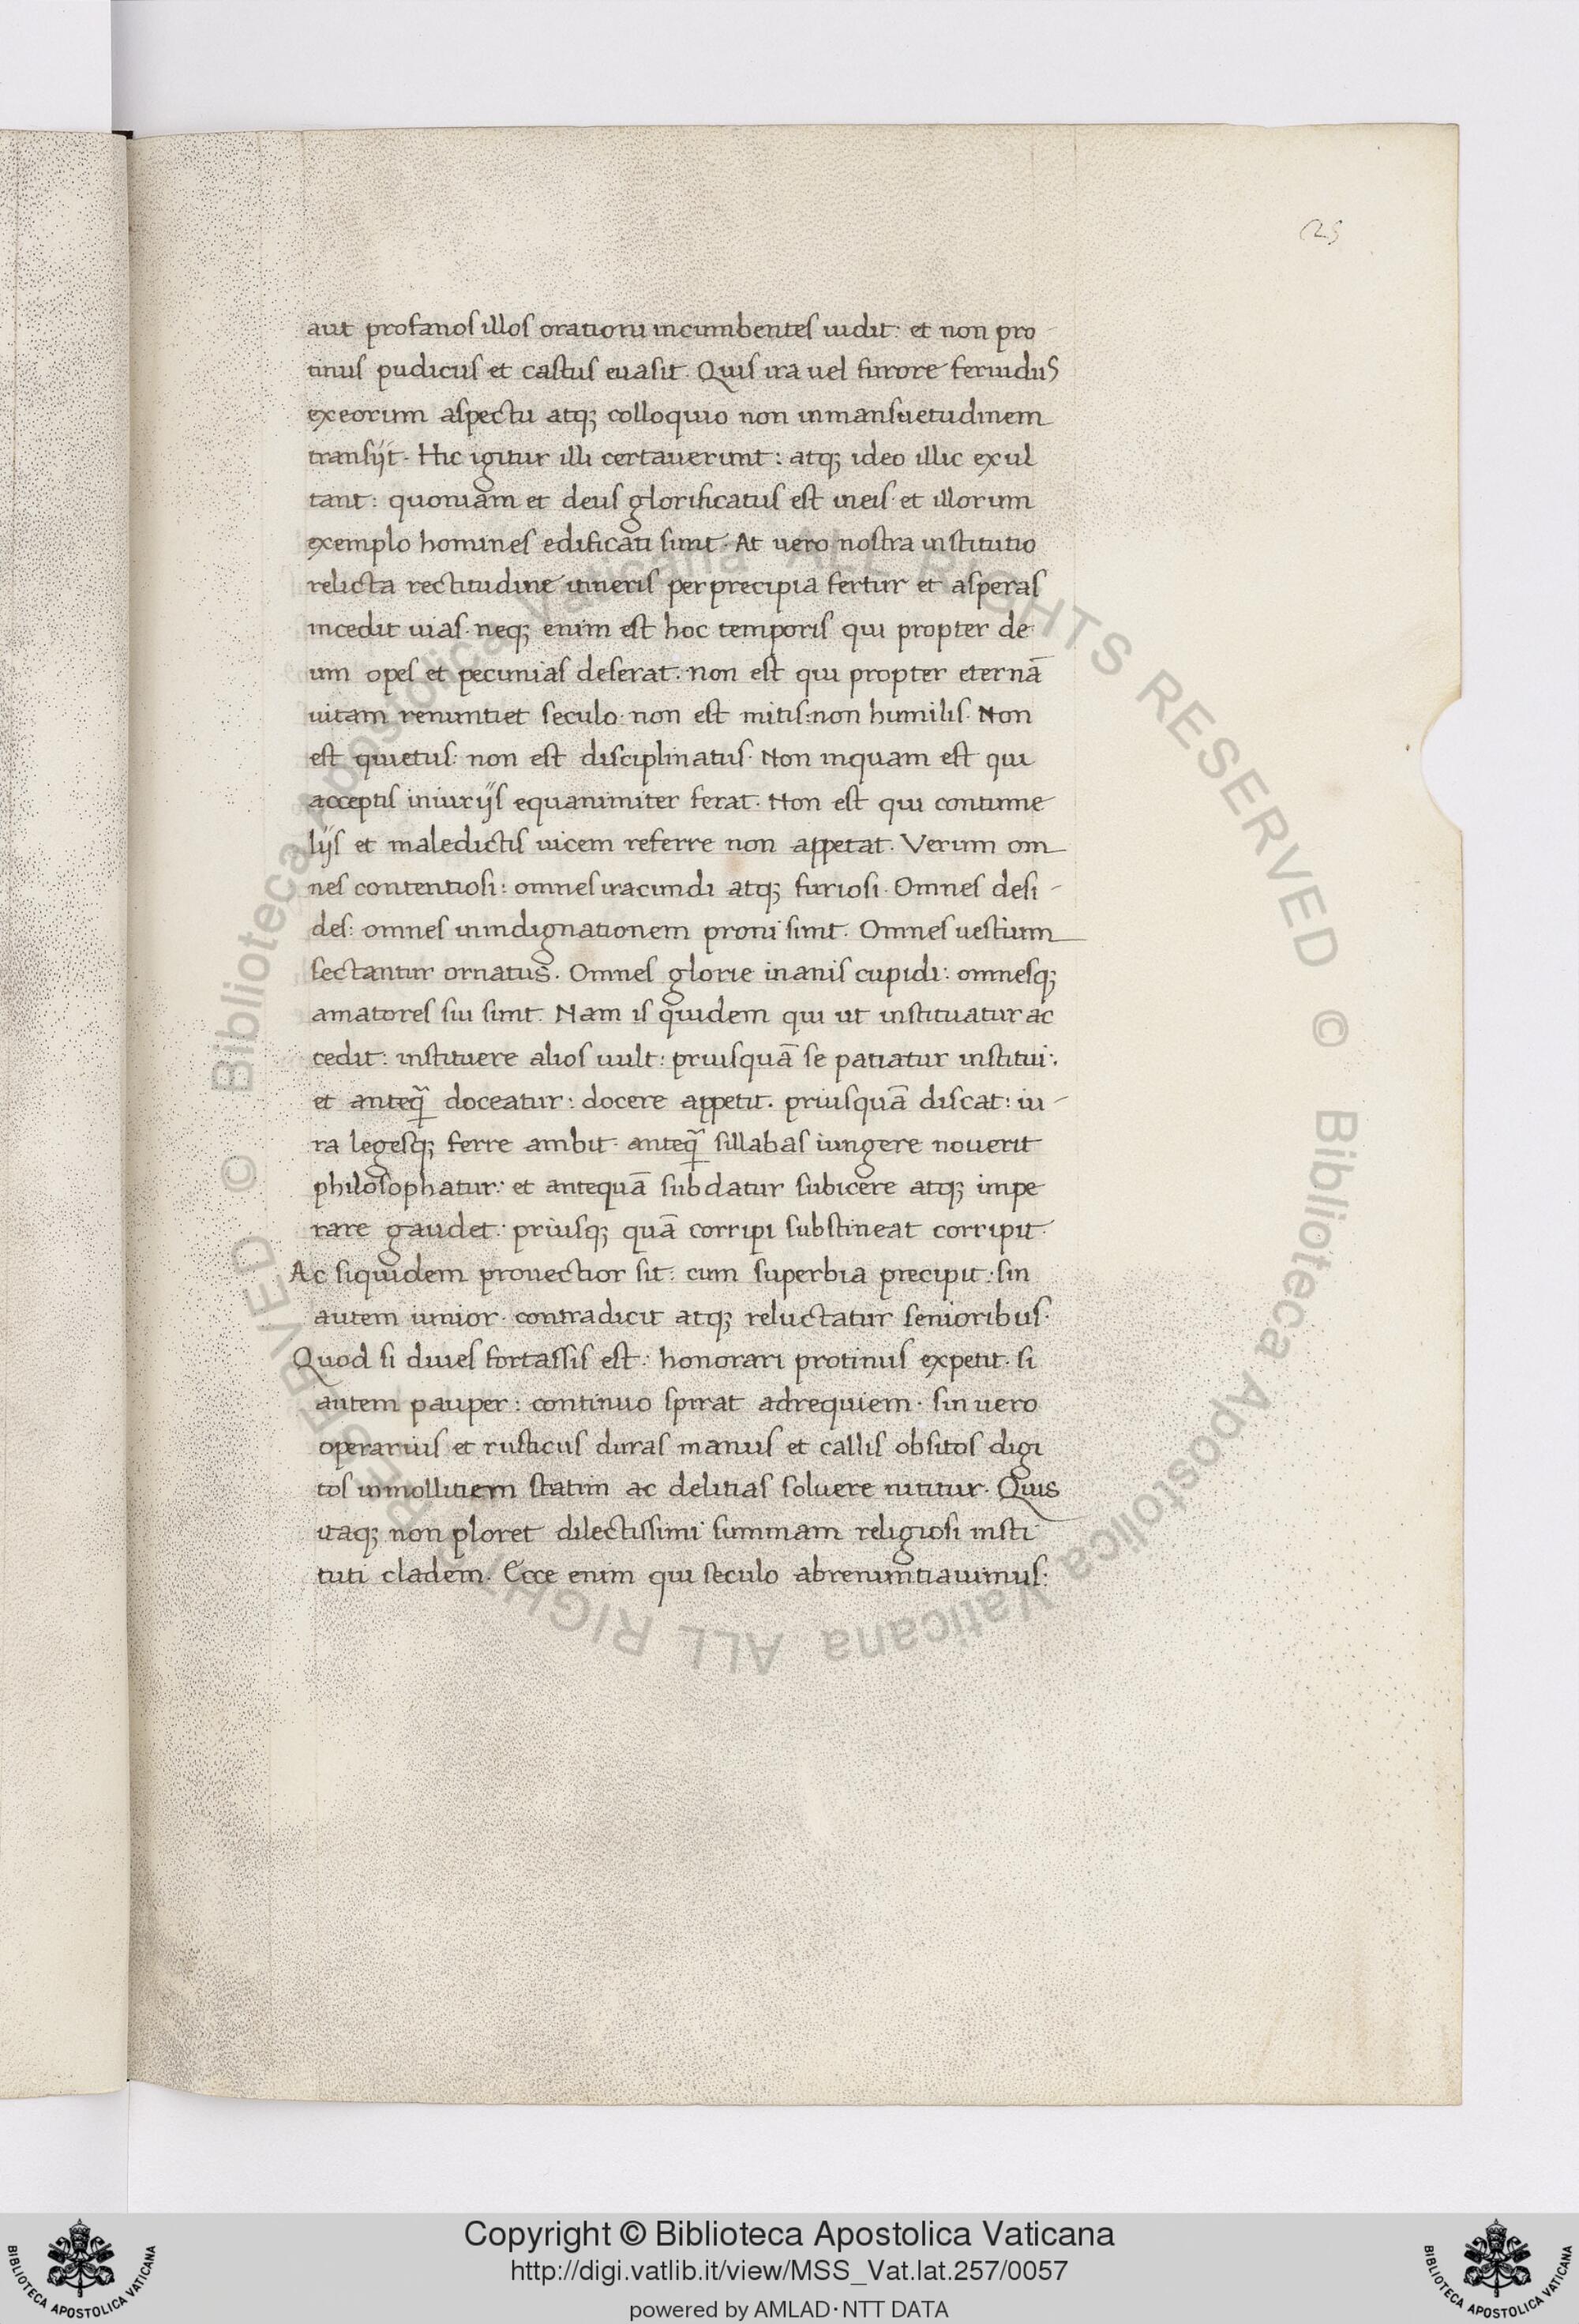 25
aut profanos illos orationi incumbentes uidit: et non pro-
tinus pudicus et castus euasit. Quis ira uel furore feruidus
exeorum aspectu atq; colloquio non inmansuetudinem
transijt. Hic igitur illi certauerunt: atq; ideo illic exul
tant: quoniam et deus glorificatus est ineis. et illorum
exemplo homines edificati sunt. At uero nostra institutio
relicta rectitudine itineris perprecipia fertur et asperas
incedit uias. neq; enim est hoc temporis qui propter de
um opes et pecunias deserat. non est qui propter eternā
uitam renuntiet seculo. non est mitis: non humilis. Non
est quietus: non est disciplinatus. Non inquam est qui
acceptis iniurijs equanimiter ferat. Non est qui contume
lijs et maledictis uicem referre non appetat. Verum om
nes contentiosi: omnes iracundi atq; furiosi. Omnes desi-
des: omnes inindignationem proni sunt. Omnes uestium
sectantur ornatus. Omnes glorie inanis cupidi: omnesq;
amatores sui sunt. Nam is quidem qui ut instituatur ac
cedit: instituere alios uult: priusquā se patiatur institui:
et anteq̄ doceatur: docere appetit. priusquā discat: iu-
ra legesq; ferre ambit. anteq̄ sillabas iungere nouerit
philosophatur: et antequā subdatur subicere atq; impe
rare gaudet: priusq; quā corripi substineat corripit.
Ac siquidem prouectior sit: cum superbia precipit: sin
autem iunior. contradicit atq; reluctatur senioribus.
Quod si diues fortassis est: honorari protinus expetit. si
autem pauper: continuo spirat adrequiem. sin uero
operarius et rusticus duras manus et callis obsitos digi
tos inmollitiem statim ac delitias soluere nititur. Quis
itaq; non ploret dilectissimi summam religiosi insti
tuti cladem. Ecce enim qui seculo abrenuntiauimus:
© Biblioteca Apostolica Vaticana ALL RIGHTS RESERVED © Biblioteca Apostolica Vaticana ALL RIGHTS RESERVED
Copyright © Biblioteca Apostolica Vaticana
http://digi.vatlib.it/view/MSS_Vat.lat.257/0057
powered by AMLAD·NTT DATA
BIBLIOTECA APOSTOLICA VATICANA
BIBLIOTECA APOSTOLICA VATICANA